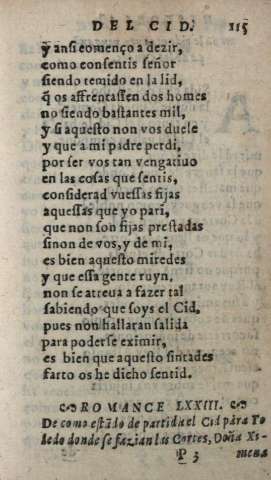 DEL CID. 115
y ansi començo a dezir,
como consentis señor
siendo temido en la lid,
q̃ os affrentassen dos homes
no siendo bastantes mil,
y si aquesto non vos duele
y que a mi padre perdi,
por ser vos tan vengatiuo
en las cosas que sentis,
considerad vuessas fijas
aquessas que yo pari,
que non son fijas prestadas
sinon de vos, y de mi,
es bien aquesto miredes
y que essa gente ruyn,
non se atreua a fazer tal
sabiendo que soys el Cid,
pues non hallaran salida
para poderse eximir,
es bien que aquesto sintades
farto os he dicho sentid.
ROMANCE LXXIII.
De como estãdo de partida el Cid pàra To
ledo donde se fazian las Cortes, Doña Xi-
P 3 mena